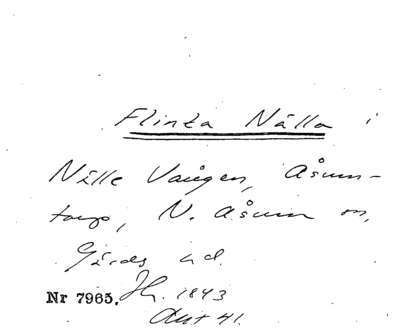 Flinta Nålla i
Nille Vången, Åsum-
torp, N. Åsum sn,
Gärds hd.
Nr 7965. Jh. 1843
Akt 41.